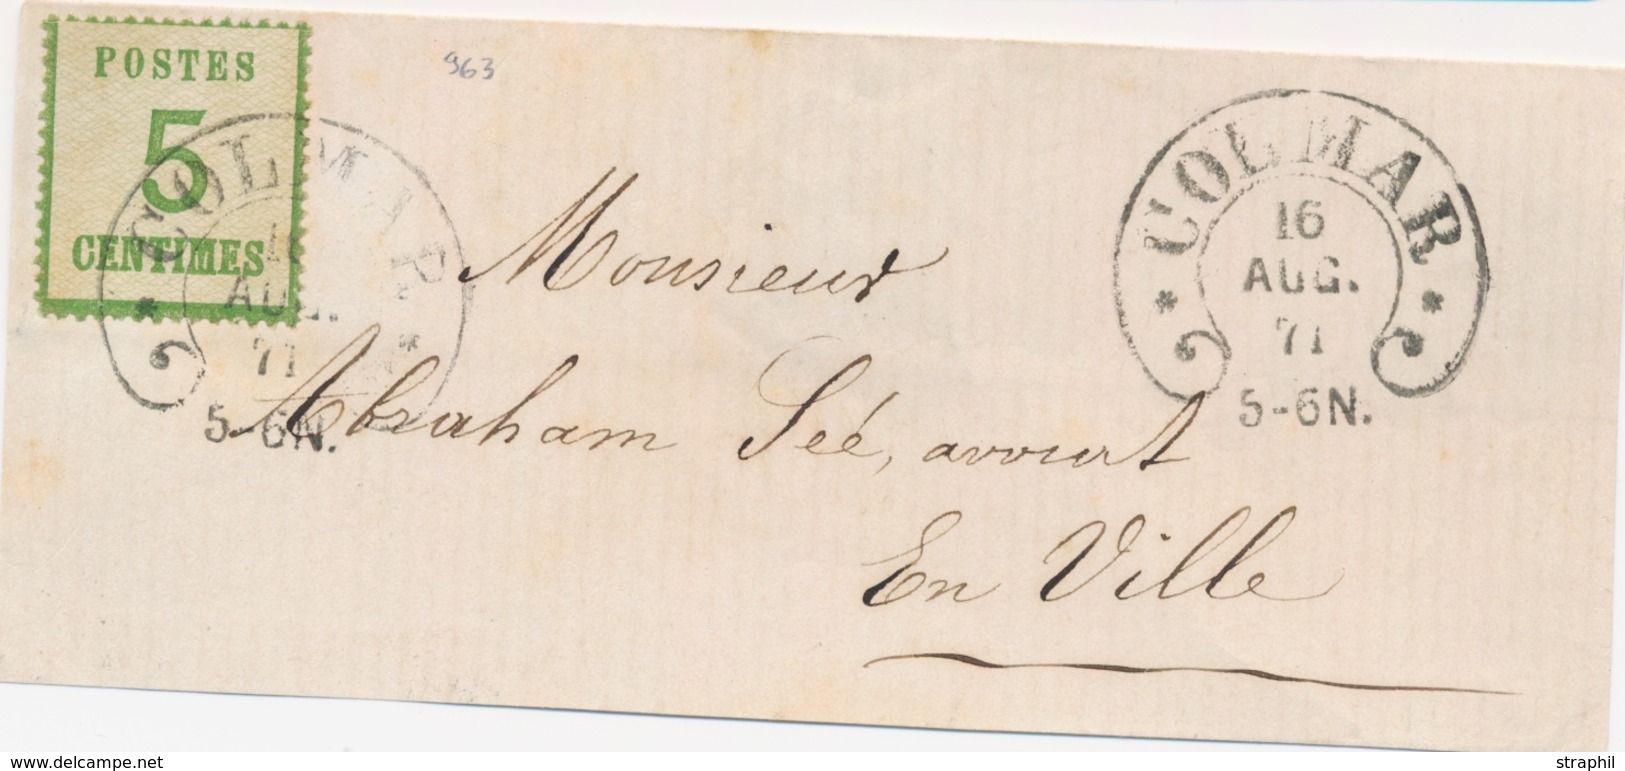 POSTES
5
CENTIMES
963
COLMAR
16
AUG.
71
5-6N.
COLMAR
16
AUG.
71
5-6N.
Monsieur
Abraham Séé, avocat
En Ville
www.delcampe.net
straphil